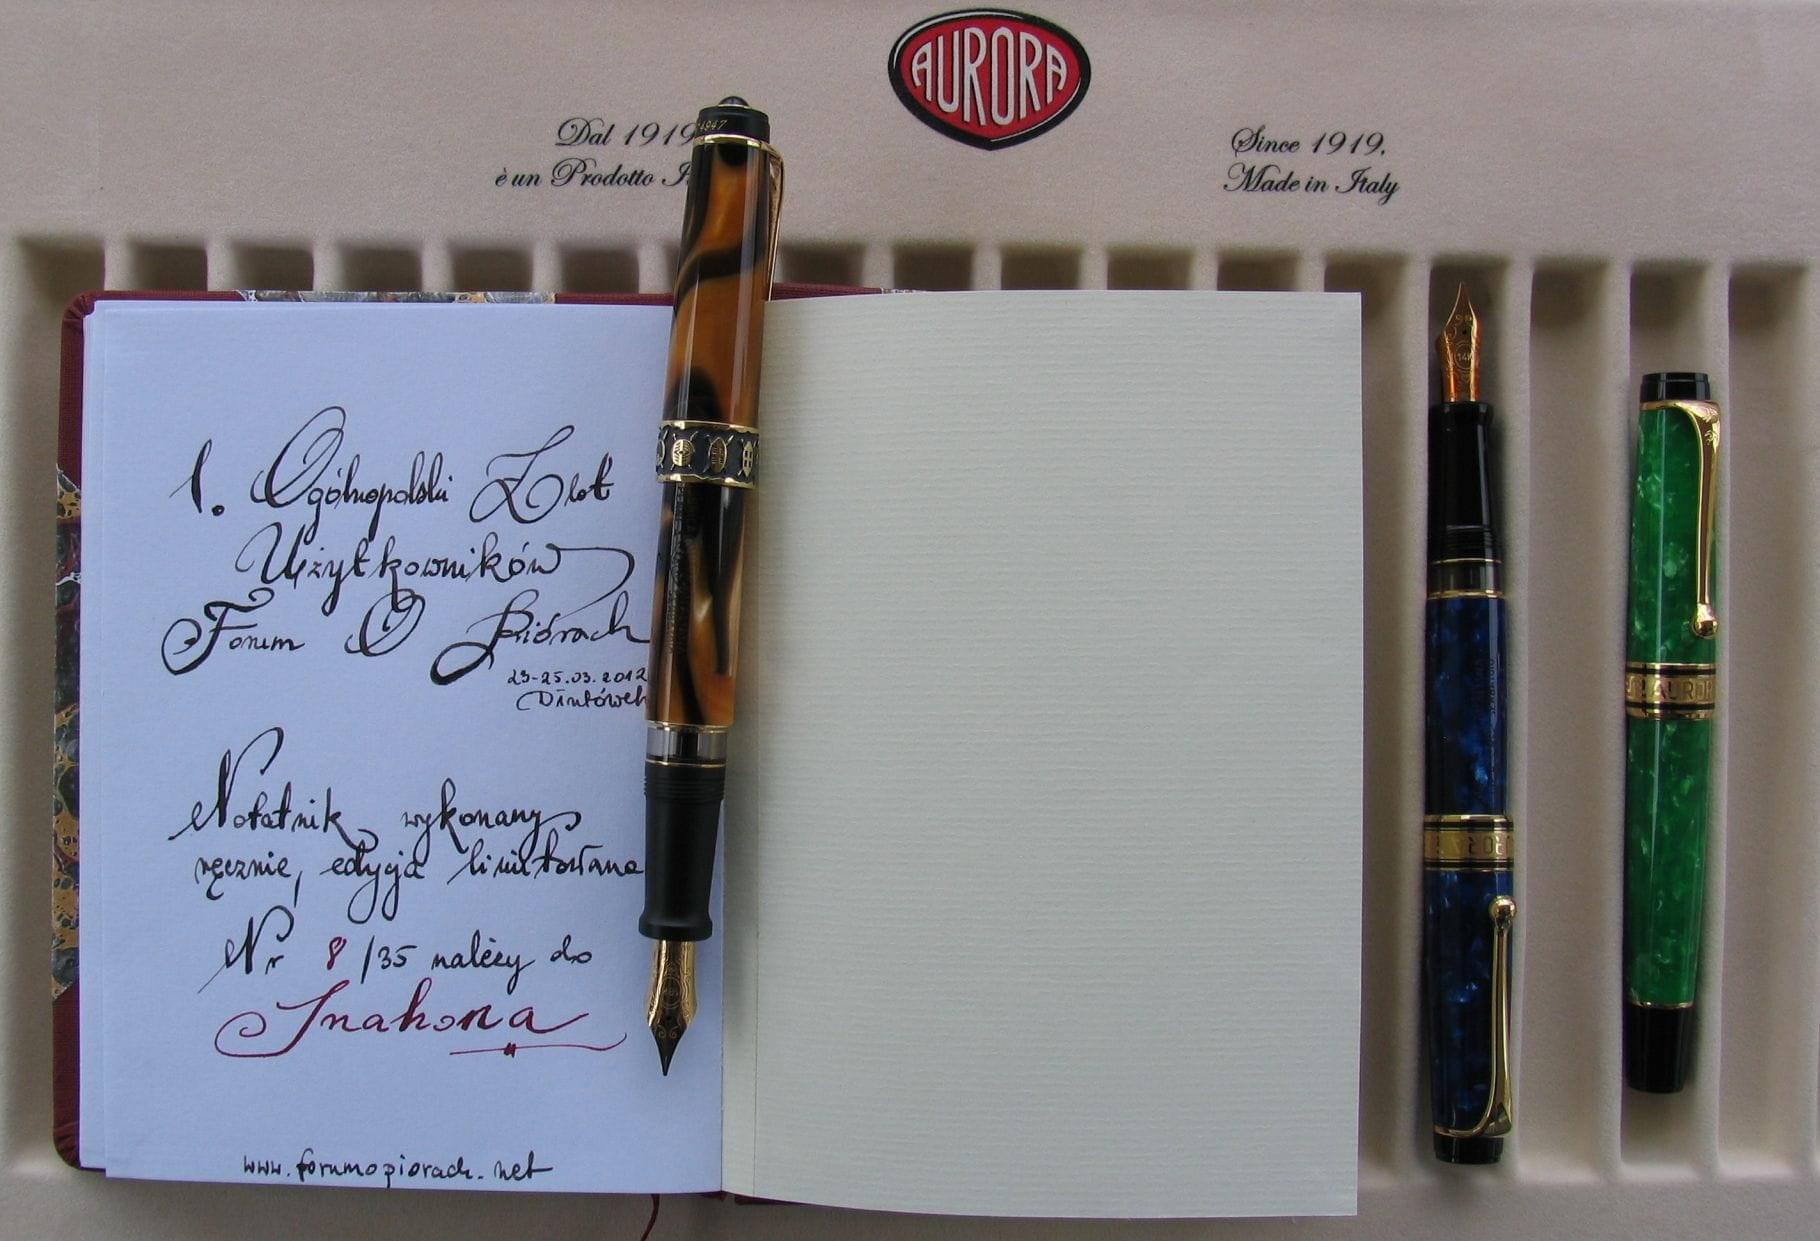 AURORA
Dal 1919
è un Prodotto
Since 1919,
Made in Italy
4947
1. Ogólnopolski Zlot
Użytkowników
Forum O Piórach
23-25.03.2012
Notatnik wykonany
ręcznie, edycja limitowana
Nr 8/35 należy do
Inahona
www.forumopiorach.net
14K
AURORA